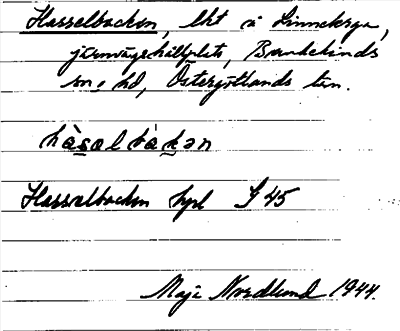 Hasselbacken, lht å Linneberga,
järnvägshållplats, Bankekinds
sn o hd, Östergötlands län.
hàsəlbákən
Hasselbacken hpl S 45
Maja Nordlund 1944.